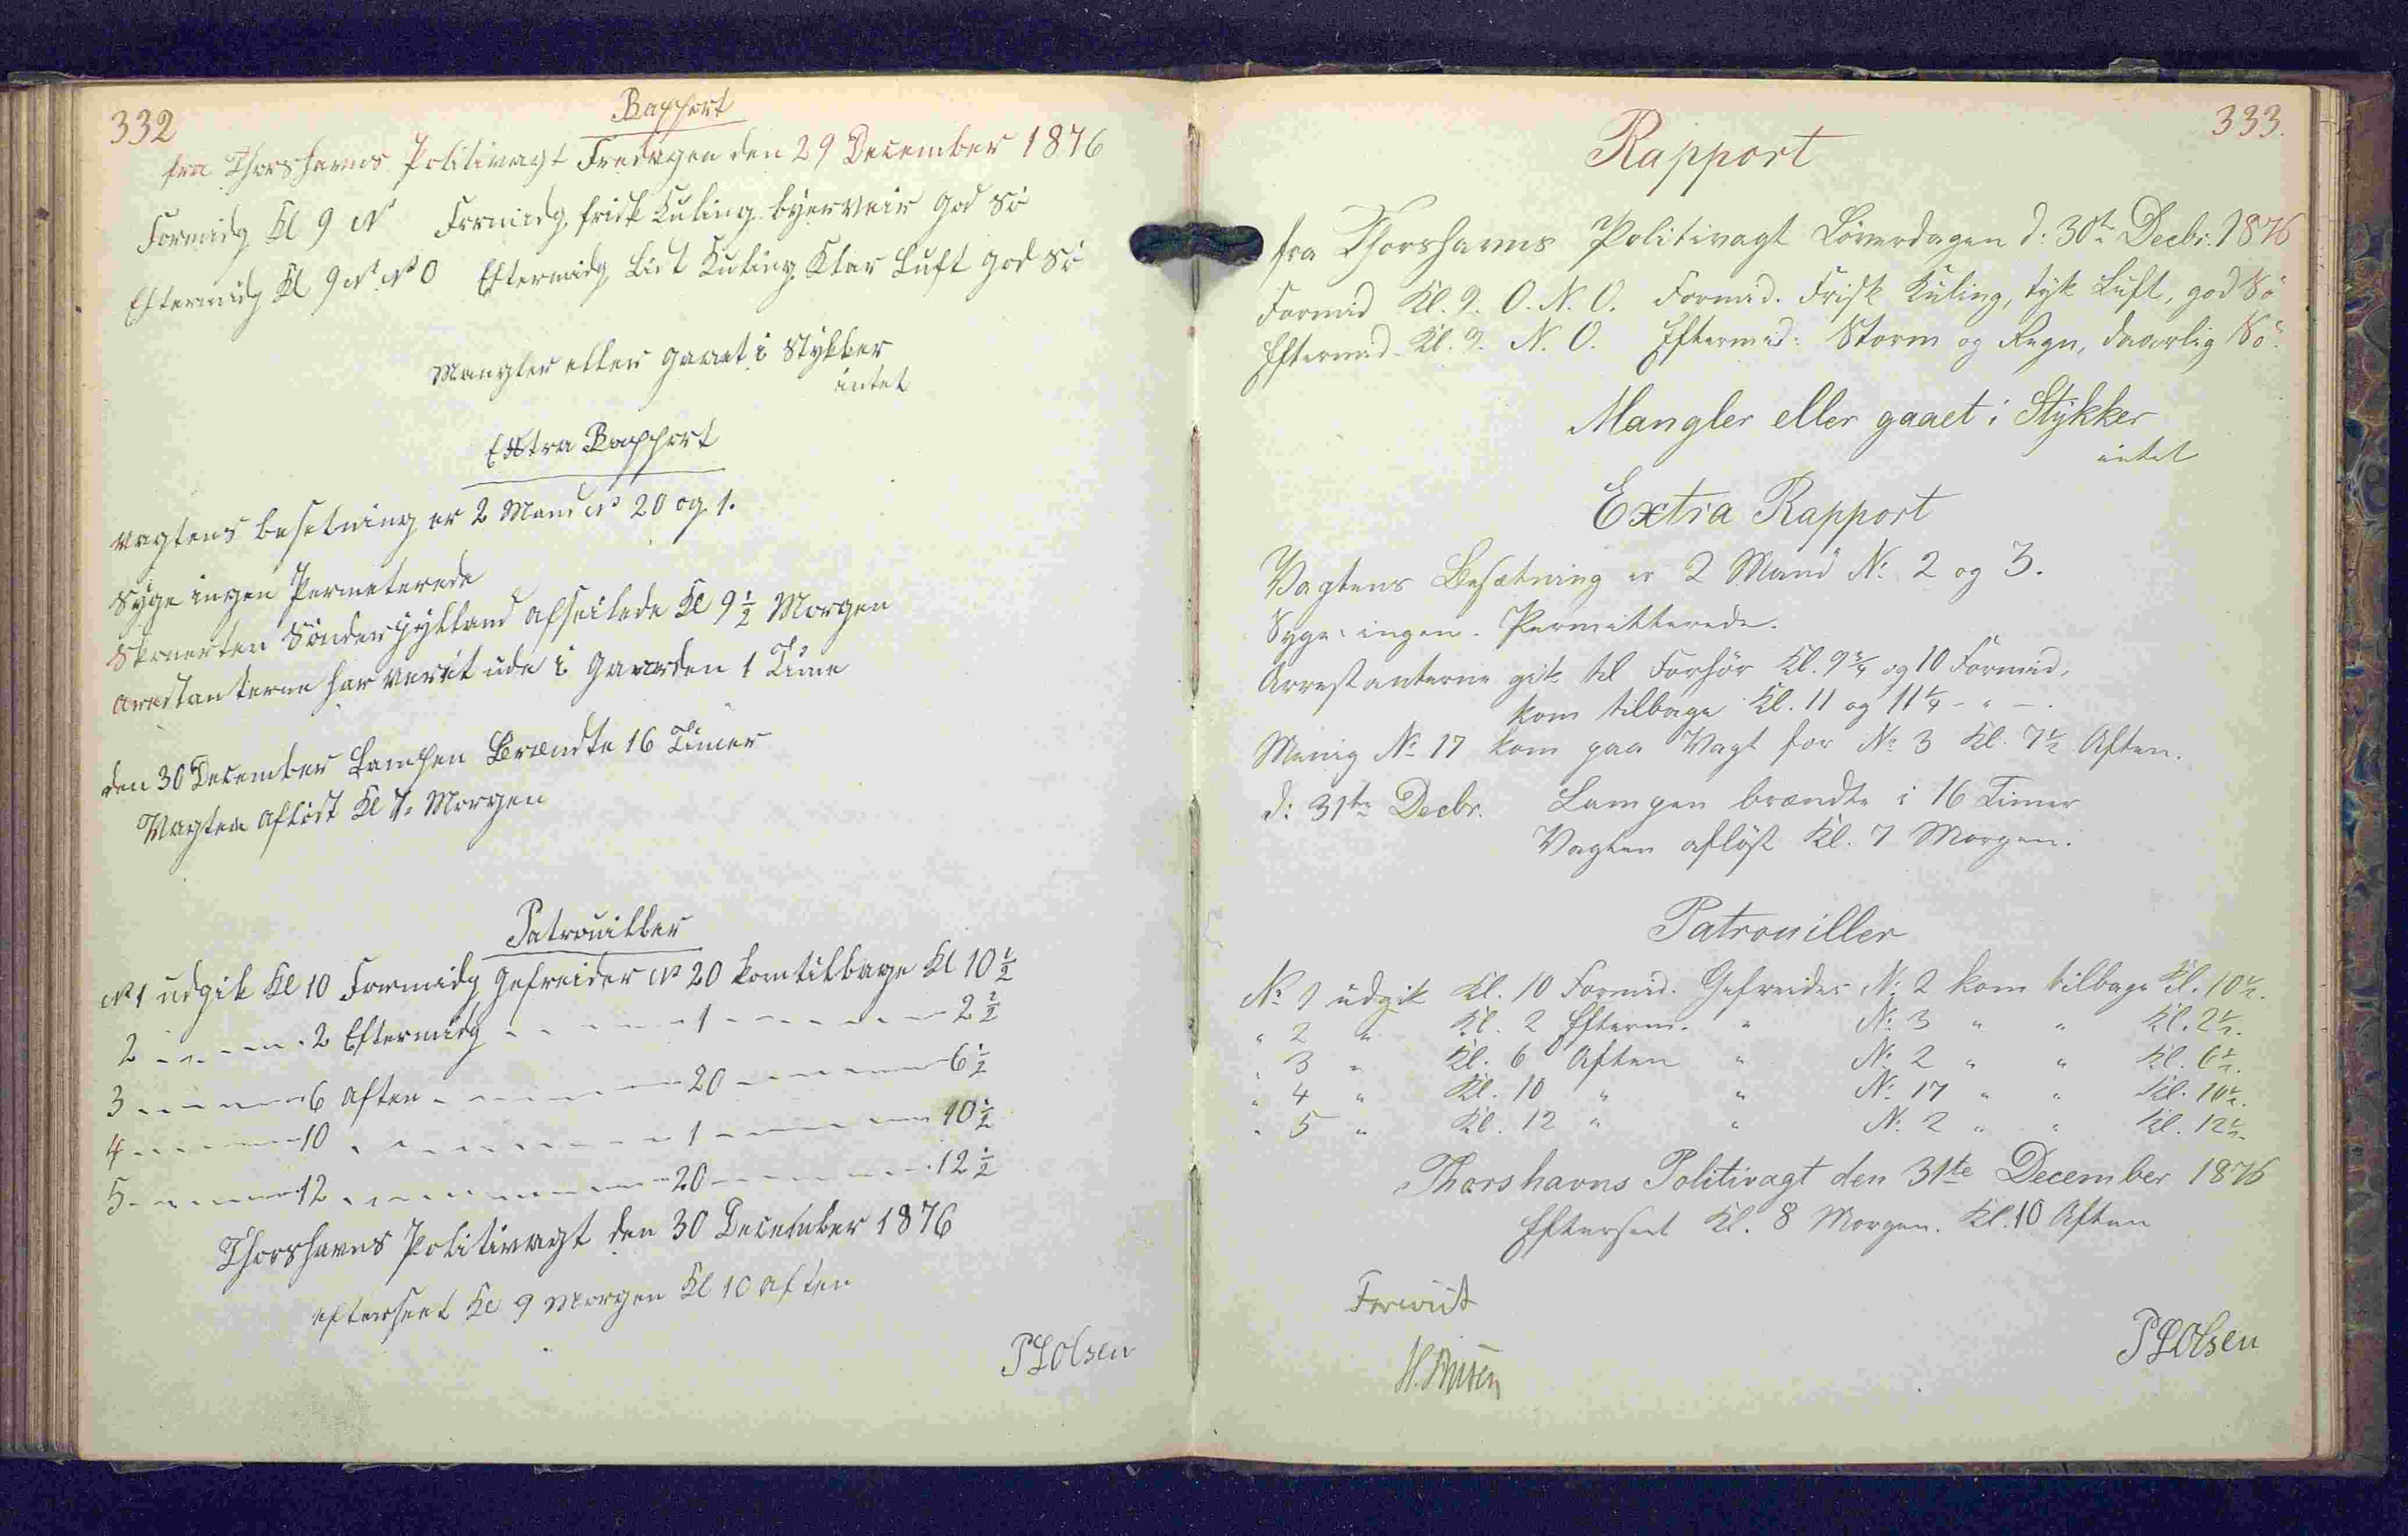 332
Rapport
fra Thorshavns Politivagt Fredagen den 29 December 1876
Formidg Kl 9 N Formidg frisk Kuling byerveir God Sö
Eftermidg Kl 9 N. N O Eftermidg Lidt Kuling Klar Luft god Sö
Mangler eller gaaet i Stykker
intet
Exstra Rapport
Vagtens besetning er 2 Mand No 20 og 1.
Syge ingen Permeterede
Skonerten Sönderjylland afseilede Kl 9 1/2 Morgen
Arestanterne har veret ude i Gaarden 1 Time
den 30 December Lampen Brændte 16 Timer
Vagten aflöst Kl 7. Morgen
Patrouiller
No 1 udgik Kl 10 Formidg Gefreider No 20 kom tilbage Kl 10 1/2
2 - - - - - 2 Eftermidg - - - - - 1 - - - - - - 2 1/2
3 - - - - - 6 Aften - - - - - 20 - - - - - 6 1/2
4 - - - - - 10 - - - - - - - 1 - - - - - 10 1/2
5 - - - - - 12 - - - - - - - 20 - - - - - 12 1/2
Thorshavns Politivagt den 30 December 1876
efterseet Kl 9 Morgen Kl 10 Aften
P L Olsen
333.
Rapport
fra Thorshavns Politivagt Löverdagen d: 30te Decbr. 1876
Formid Kl. 9. O. N. O. Formid. Frisk Kuling, tyk Luft, god Sö
Eftermid. Kl. 9. N. O. Eftermid: Storm og Regn, daarlig Sö.
Mangler eller gaaet i Stykker
intet
Extra Rapport
Vagtens Besætning er 2 Mand No. 2 og 3.
Syge: ingen. Permitterede.
Arrestanterne gik til Forhör Kl. 9 3/4 og 10 Formid.
kom tilbage Kl. 11 og 11 1/4 - " -.
Menig No. 17 kom paa Vagt for No. 3 Kl. 7 1/2 Aften.
d: 31te Decbr. Lampen brændte i 16 Timer
Vagten aflöst Kl. 7 Morgen.
Patrouiller
No. 1 udgik Kl. 10 Formid. Gefreider No. 2 kom tilbage Kl. 10 1/2.
" 2 " Kl. 2 Efterm. " No. 3 " " Kl. 2 1/2.
" 3 " Kl. 6 Aften " No. 2 " " Kl. 6 1/2.
" 4 " Kl. 10 " " No. 17 " " Kl. 10 1/2.
" 5 " Kl. 12 " " No. 2 " " Kl. 12 1/2.
Thorshavns Politivagt den 31te December 1876
Efterseet Kl. 8 Morgen. Kl. 10 Aften
Forevist
P L Olsen